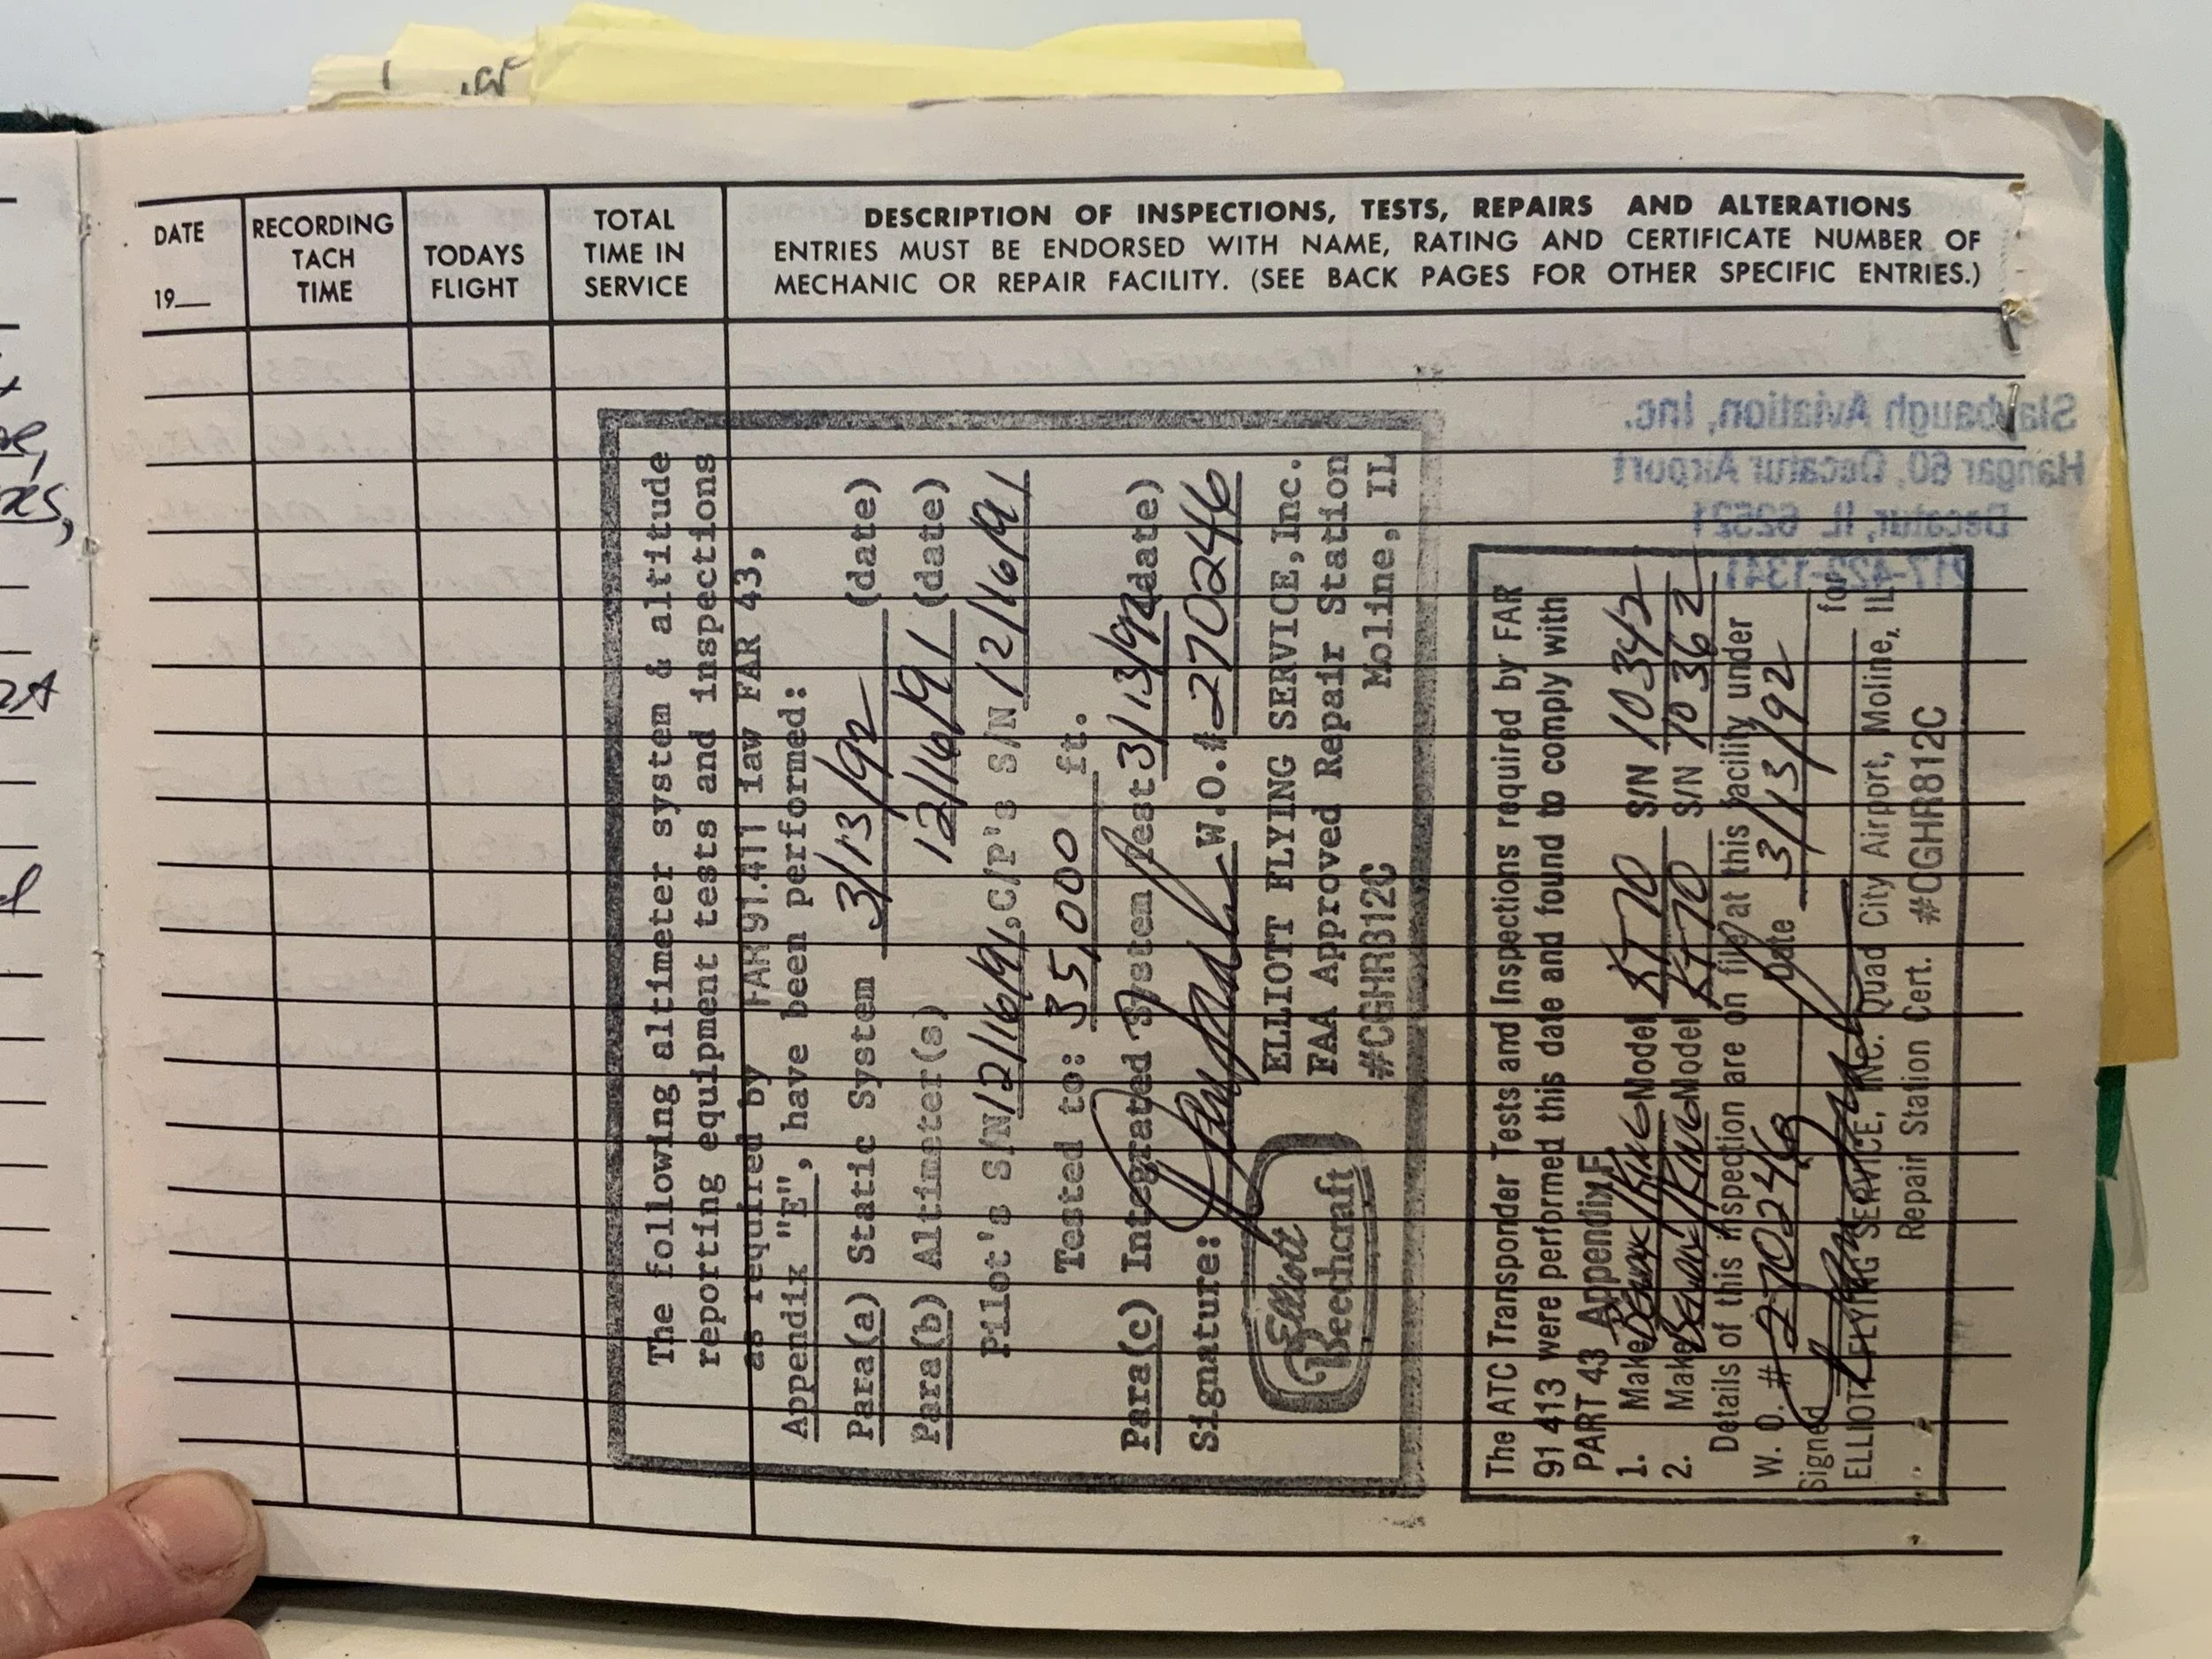 DATE
19__
RECORDING
TACH
TIME
TODAYS
FLIGHT
TOTAL
TIME IN
SERVICE
DESCRIPTION OF INSPECTIONS, TESTS, REPAIRS AND ALTERATIONS
ENTRIES MUST BE ENDORSED WITH NAME, RATING AND CERTIFICATE NUMBER OF
MECHANIC OR REPAIR FACILITY. (SEE BACK PAGES FOR OTHER SPECIFIC ENTRIES.)
The following altimeter system & altitude
reporting equipment tests and inspections
as required by FAR 91.411 iaw FAR 43,
Appendix "E", have been performed:
Para(a) Static System 3/13/92 (date)
Para(b) Altimeter(s) 12/16/91 (date)
Pilot's S/N 12/16/91, C/P's S/N 12/16/91
Tested to: 35,000 ft.
Para(c) Integrated System Test 3/13/92 (date)
Signature: W.O.# 270246
Elliott
Beechcraft
ELLIOTT FLYING SERVICE, Inc.
FAA Approved Repair Station
#CGHR812C Moline, IL
The ATC Transponder Tests and Inspections required by FAR
91 413 were performed this date and found to comply with
PART 43 Appendix F
1. Make BENDIX/KING Model KT 70 S/N 10342
2. Make BENDIX/KING Model KT 70 S/N 10362
Details of this inspection are on file at this facility under
W. O. # 270246 Date 3/13/92
Signed for
ELLIOTT FLYING SERVICE, INC. Quad City Airport, Moline, IL
Repair Station Cert. #CGHR812C
Slaybaugh Aviation, Inc.
Hangar 60, Decatur Airport
Decatur, IL 62521
217-422-1341